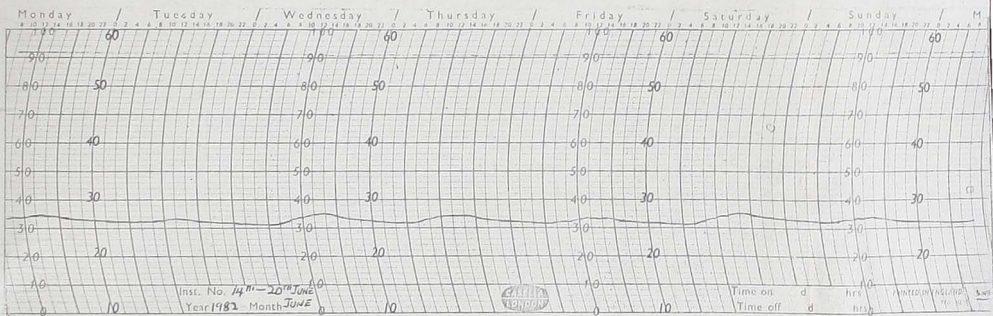 Monday / Tuesday / Wednesday / Thursday / Friday / Saturday / Sunday / M
100 60 100 60 100 60 100 60
90 90 90 90
80 50 80 50 80 50 80 50
70 70 70 70
60 40 60 40 60 40 60 40
50 50 50 50
40 30 40 30 40 30 40 30
30 30 30 30
20 20 20 20 20 20 20 20
10 10 10 10
Inst. No. 14th - 20th JUNE
Year 1982 Month JUNE
CASELLA
LONDON
Time on d hrs
Time off d hrs
PRINTED IN ENGLAND
0 10 0 10 0 10 0